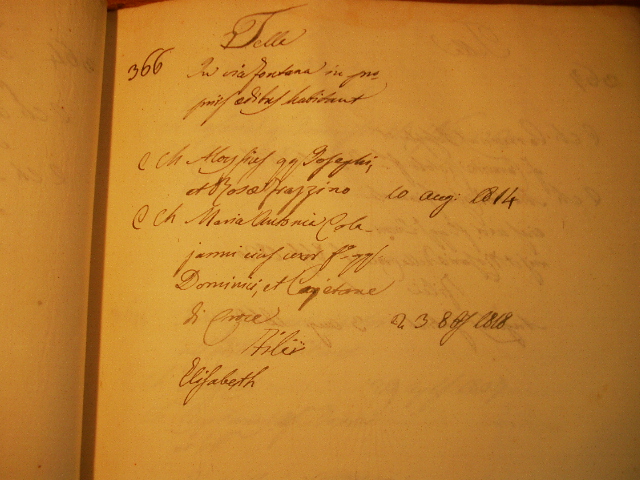 Telle
366 In via fontana in pro
priis ædibus habitant
C Ch Aloysius qq Josephi,
et Rosæ Frazzino 10 aug: 1814
C Ch Maria Antonia Cola-
janni eius uxor f. qq
Dominici, et Cajetane
di Croce 23 8bs 1818
Filii
Elisabeth